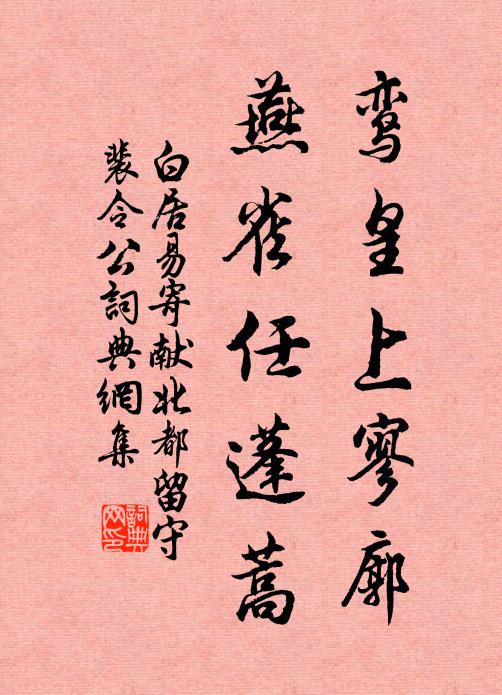 鸾皇上寥廓
燕雀任蓬蒿
白居易寄献北都留守
裴令公詞典網集
詞典网印